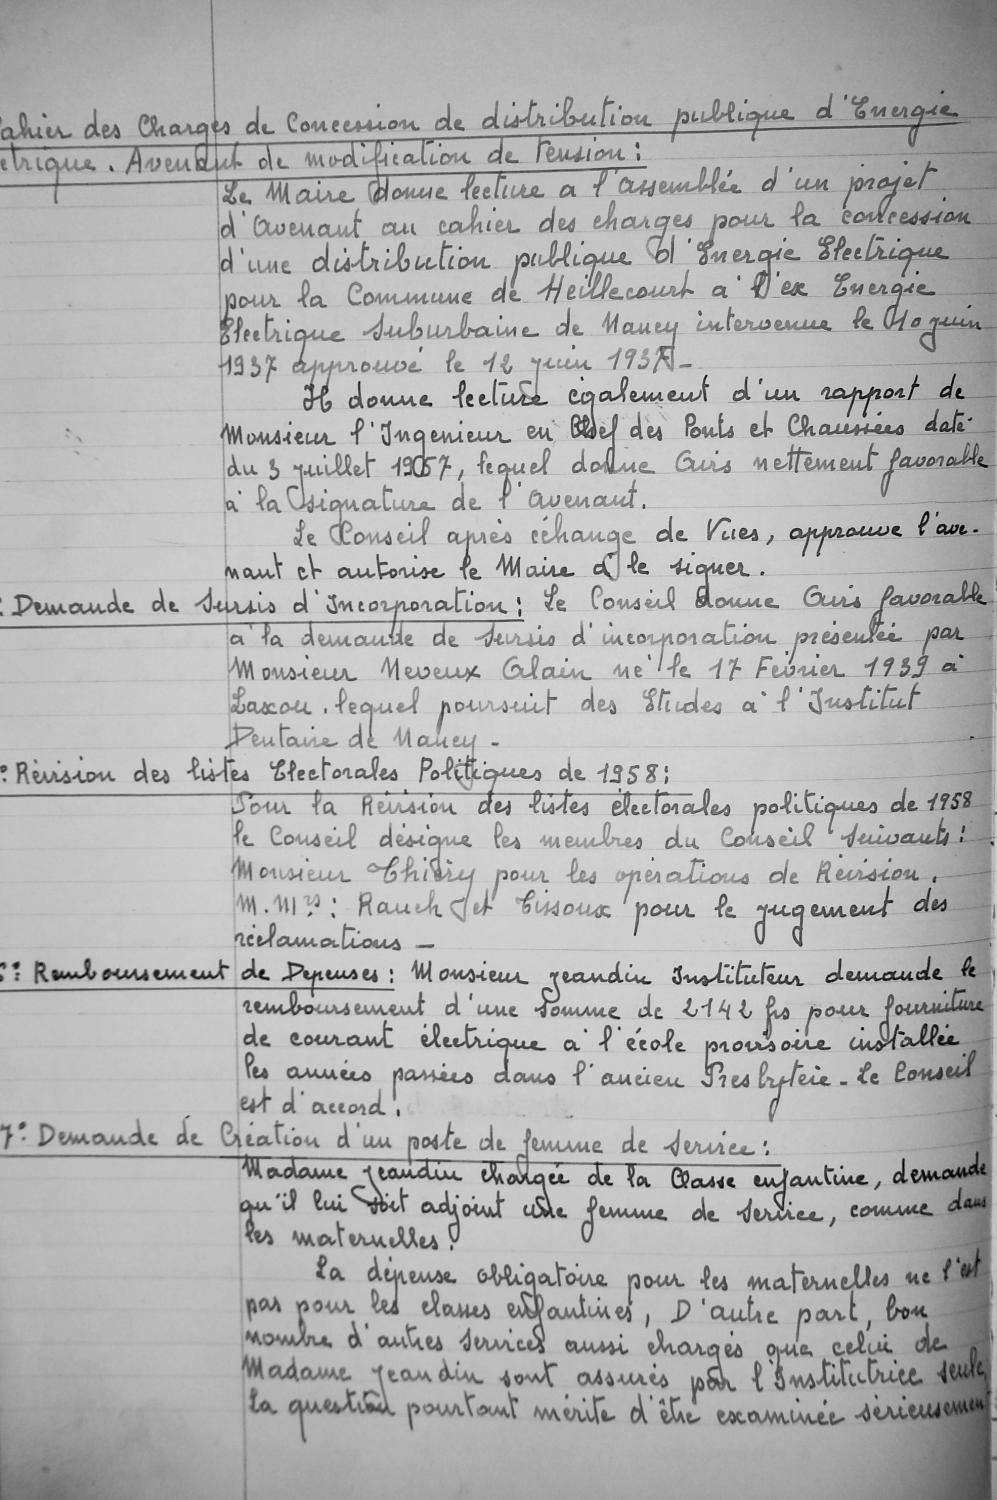 ahier des Charges de Concession de distribution publique d'Energie
ctrique. Avenant de modification de Tension :
Le Maire donne lecture a l'Assemblée d'un projet
d'Avenant au cahier des charges pour la concession
d'une distribution publique d'Energie Electrique
pour la Commune de Heillecourt à l'ex Energie
Electrique Suburbaine de Nancy intervenue le 10 juin
1937 approuvé le 12 juin 1937 -
Il donne lecture également d'un rapport de
Monsieur l'Ingenieur en Chef des Ponts et Chaussées daté
du 3 juillet 1957, lequel donne Avis nettement favorable
à la signature de l'Avenant.
Le Conseil après échange de Vues, approuve l'ave-
nant et autorise le Maire à le signer.
: Demande de Sursis d'Incorporation : Le Conseil donne Avis favorable
à la demande de Sursis d'incorporation présentée par
Monsieur Neveux Alain né le 17 Février 1939 à
Laxou. lequel poursuit des Etudes à l'Institut
Dentaire de Nancy -
° Révision des listes Electorales Politiques de 1958 :
Pour la Révision des listes électorales politiques de 1958
le Conseil désigne les membres du Conseil Suivants :
Monsieur Thiéry pour les opérations de Révision.
M. Mrs : Rauch et Tissoux pour le jugement des
réclamations -
6°: Remboursement de Depenses : Monsieur Jeandin Instituteur demande le
remboursement d'une Somme de 2142 frs pour fourniture
de courant électrique à l'école provisoire installée
les années passées dans l'ancien Presbytère - Le Conseil
est d'accord.
7°: Demande de Création d'un poste de femme de Service :
Madame Jeandin chargée de la Classe enfantine, demande
qu'il lui soit adjoint une femme de Service, comme dans
les maternelles.
La dépense obligatoire pour les maternelles ne l'est
pas pour les classes enfantines, D'autre part, bon
nombre d'autres Services aussi chargés que celui de
Madame Jeandin sont assurés par l'Institutrice seule,
la question pourtant mérite d'être examinée sérieusement